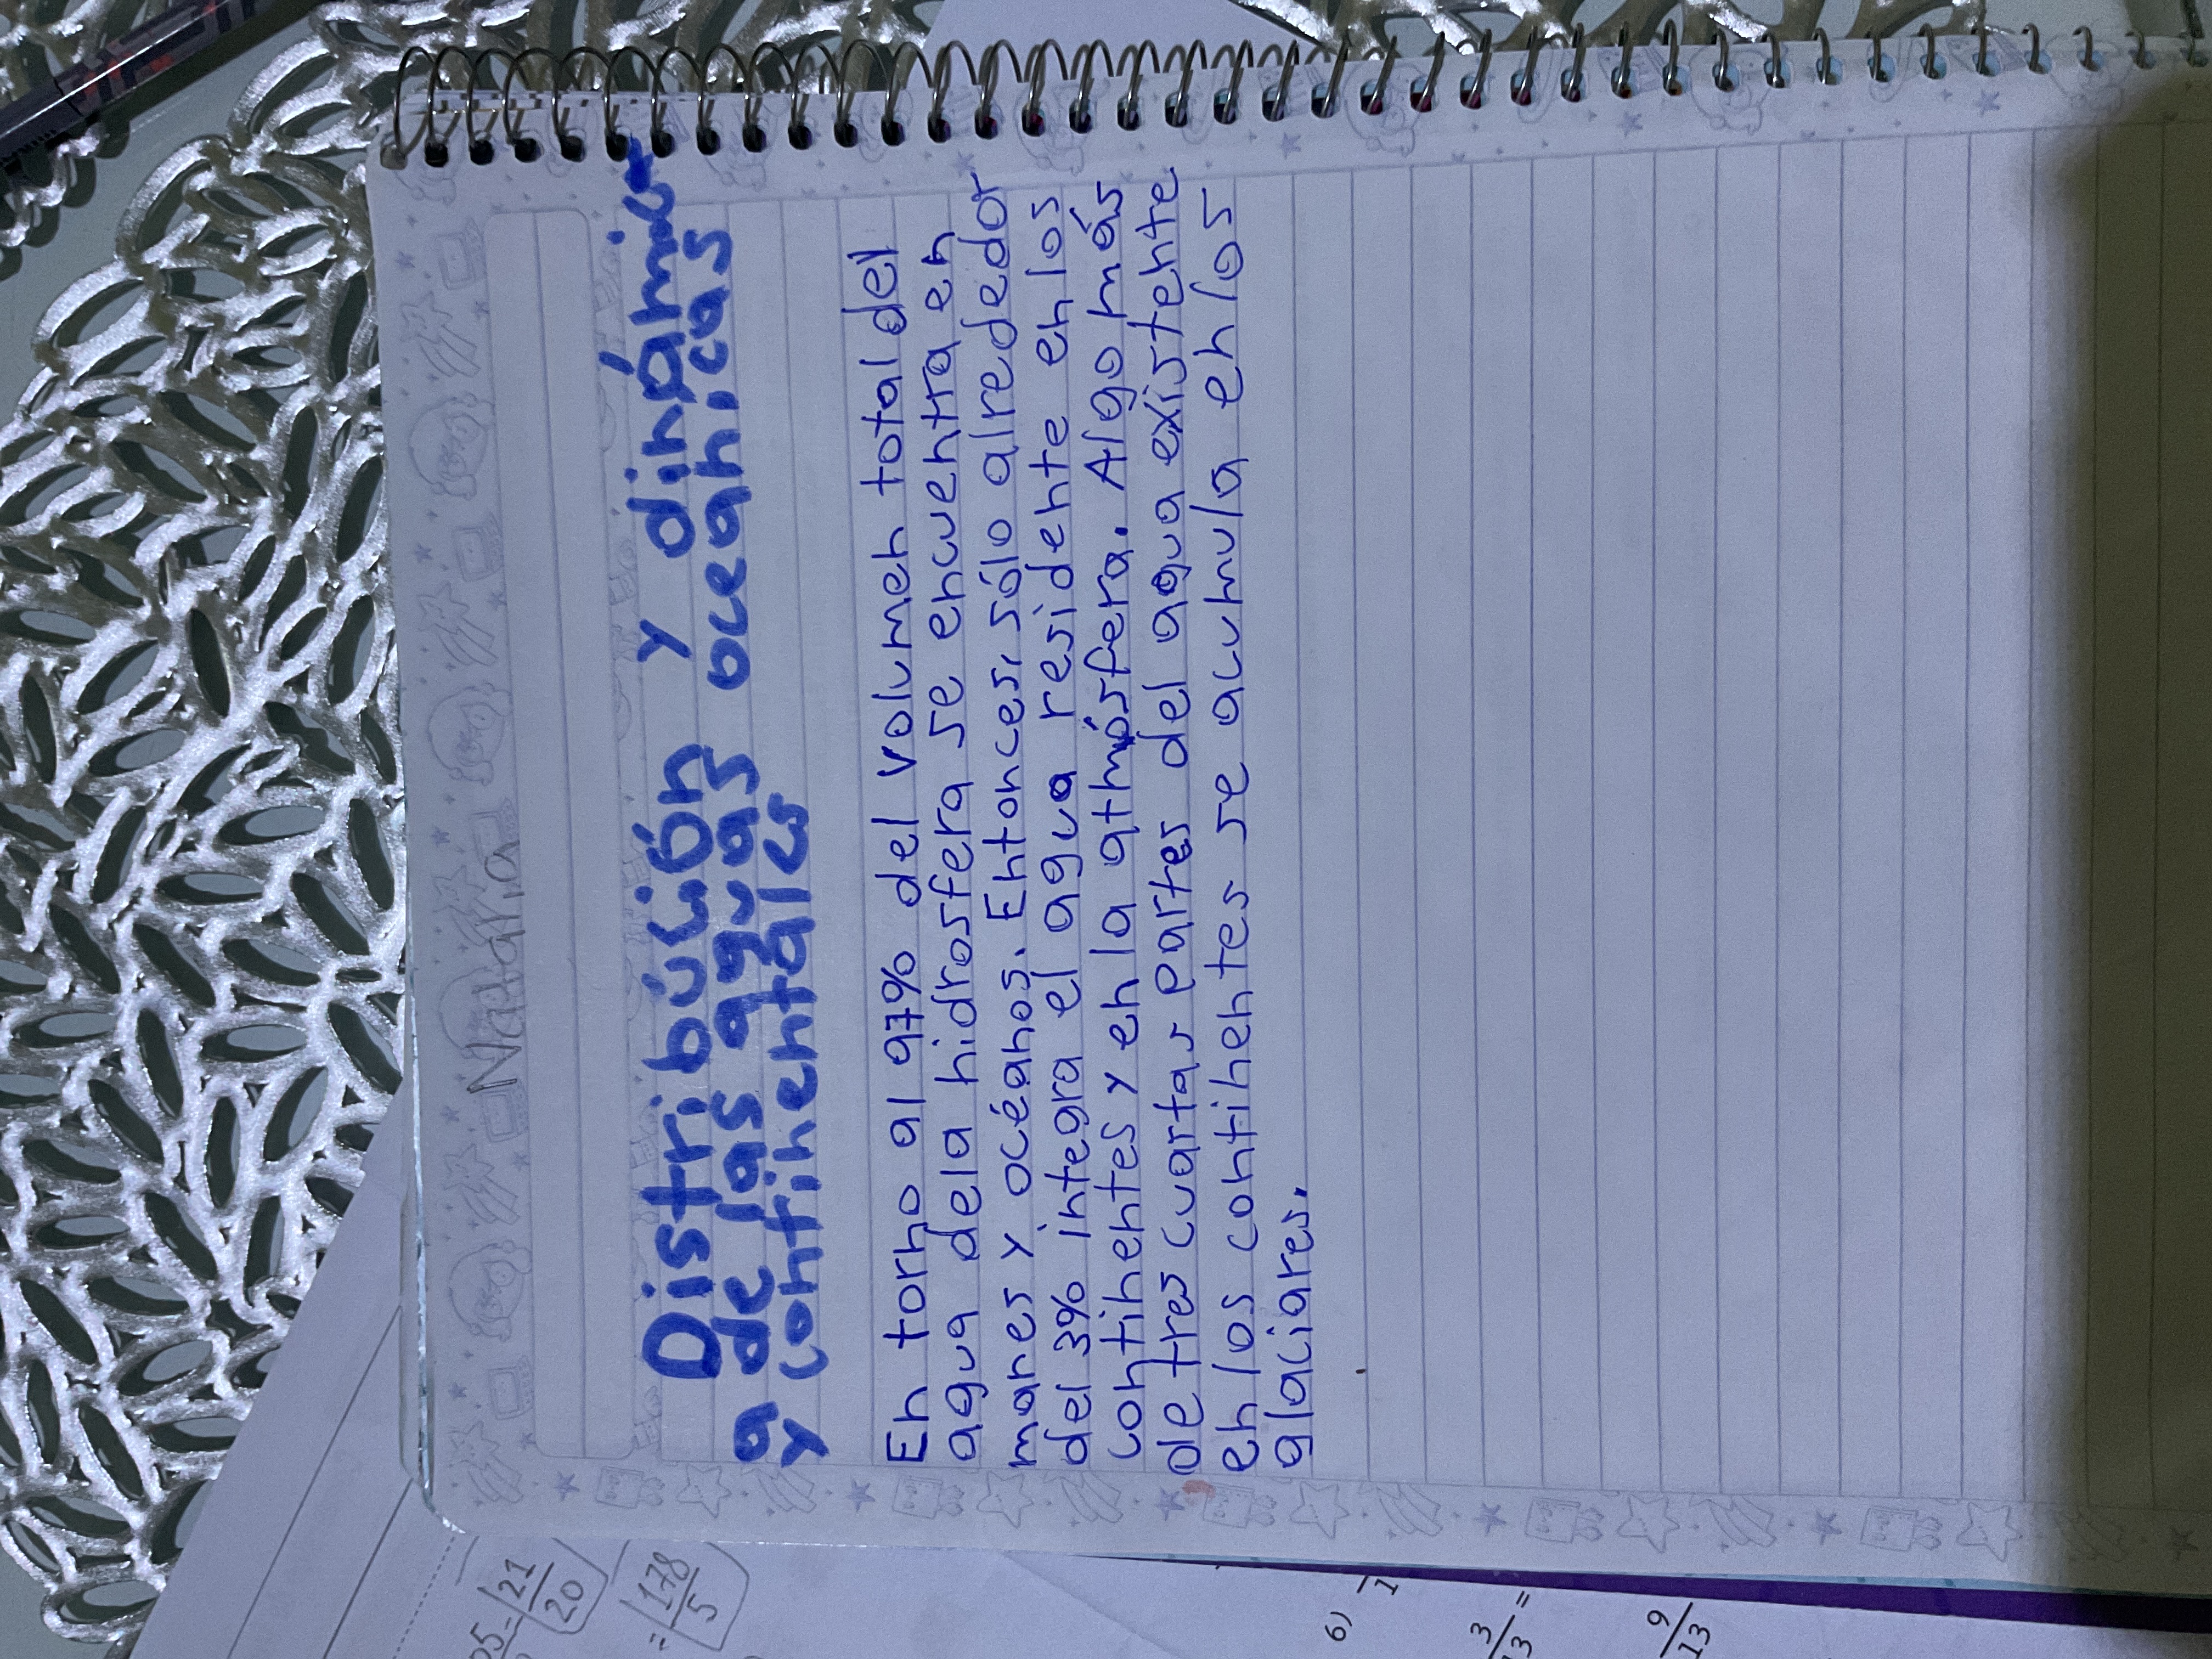 Natalia
Distribución y dinámic
a de las aguas oceánicas
y continentales
En torno al 97% del volumen total del
agua dela hidrosfera se encuentra en
mares y océanos. Entonces, sólo alrededor
del 3% integra el agua residente en los
continentes y en la atmósfera. Algo más
de tres cuartas partes del agua existente
en los continentes se acumula en los
glaciares.
21
20
= 178
5
6)
3
=
13
9
13